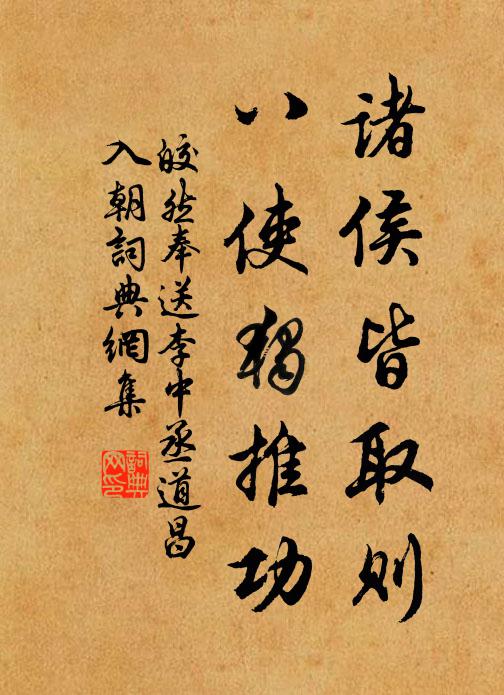 诸侯皆取则
八使獨推功
皎然奉送李中丞道昌
入朝詞典網集
詞典网印